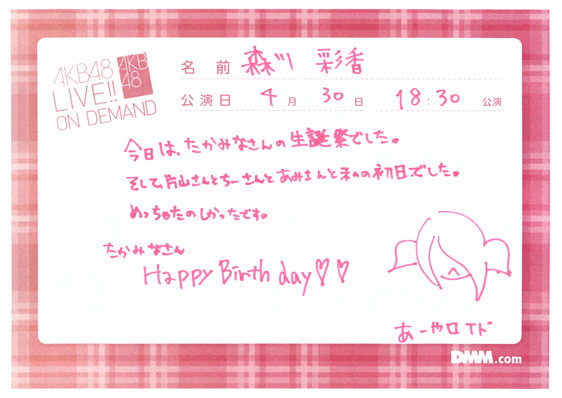 AKB48
LIVE!!
ON DEMAND
AKB
48
名 前 森川 彩香
公演日 4月 30日 18:30 公演
今日は、たかみなさんの生誕祭でした。
そして、片山さんとちーさんとあみさんと私の初日でした。
めっちゃたのしかったです。
たかみなさん
Happy Birthday♡♡
あーやロイド
DMM.com